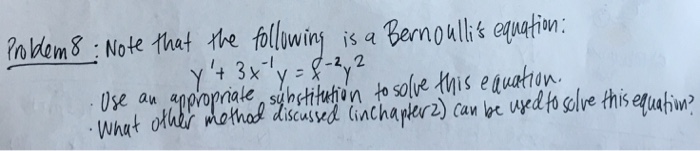 Problem 8 : Note that the following is a Bernoulli's equation:
y' + 3x⁻¹y = x⁻²y²
· Use an appropriate substitution to solve this equation.
· What other method discussed (in chapter 2) can be used to solve this equation?